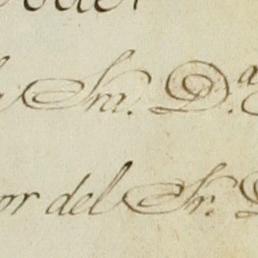 Sra. D.ª
or del Sr. D